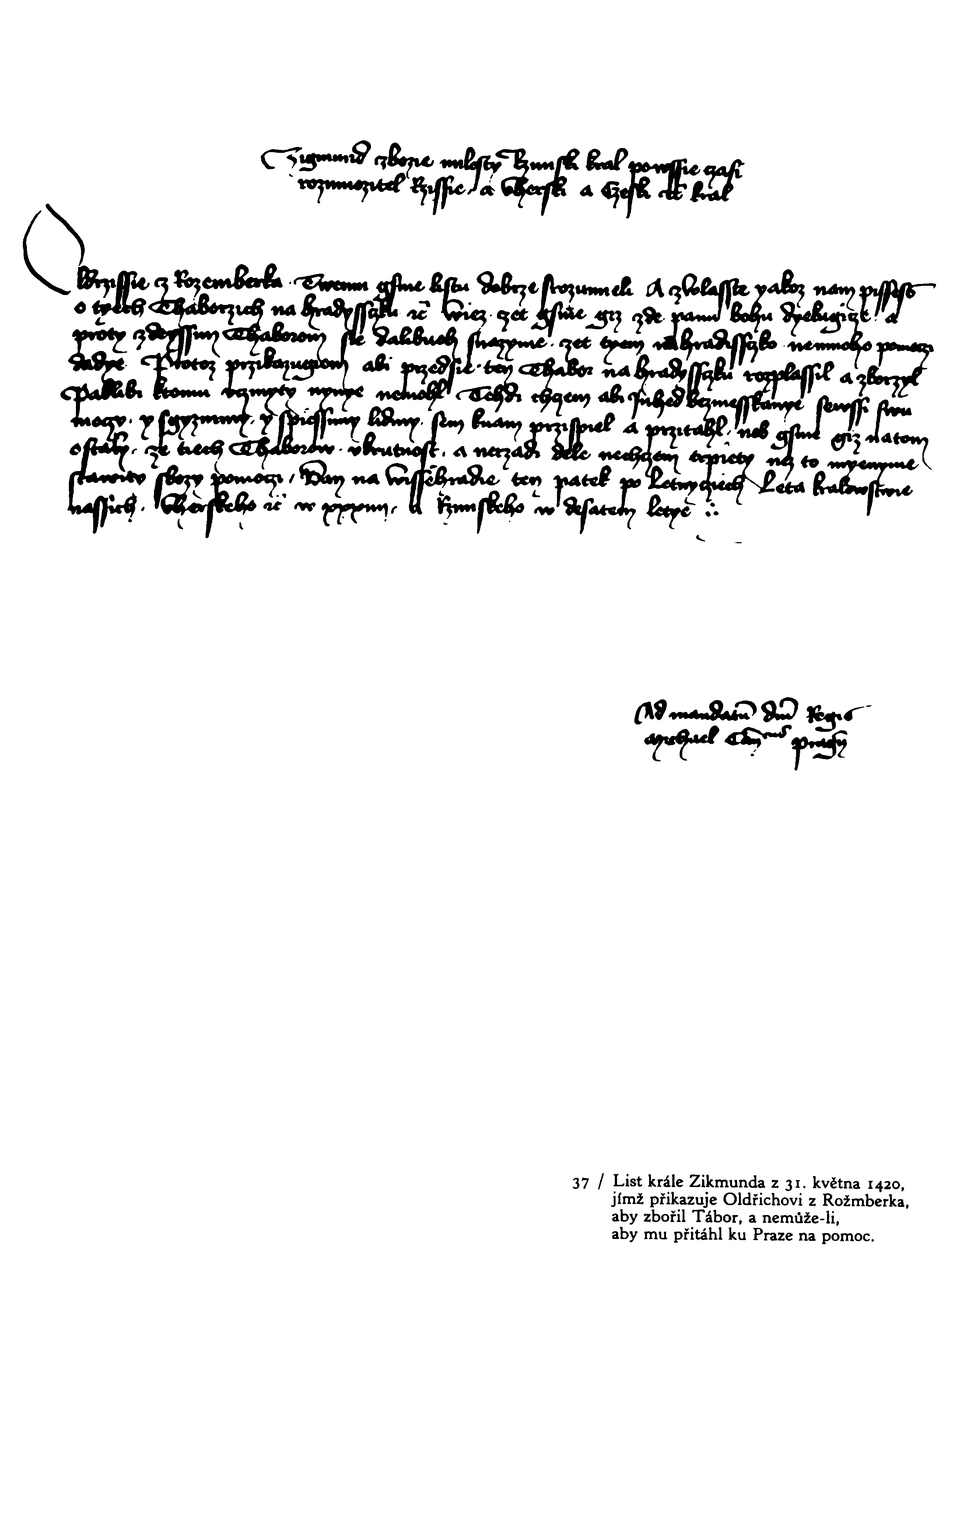 Sigmund czbozie milosty Rzimski kral powssie czasi
rozmnozitel Rzissie, a Vherski a Czeski etc kral
Oldrzissie cz Rozemberka. Twemu gsme listu dobrze srozumneli A czvolasste yakoz nam pissess
o tyech Thaborzich na hradyssczku etc wiez zet gsme giz zde panu bohu dyekugice a
proty zdeyssim Thaborom sie dalibuoh snazyme. zet tyem nahradissczko nemnoho pomoczi
dadye Protoz przikazugiem abi przedsie ten Thabor na hradyssczku rozplassil a zborzyl
Paklibi ktomu uczinyty nynye nemohl Tehdi chczem abi Inhed bezmesskanye sewssi swu
moczy. y sgyznimy. y spiessimy lidmy. sem knam przispiel a przitahl. neb gsme giz natom
ostaly. ze tiech Thaborow. ukrutnost. a nerzadi dele nechczem trpiety nez to myenyme
stawity sbozy pomoczi. Dan na Wissehradie ten patek po Letnycziech Leta kralowstwie
nassich. Vherskeho etc w xxxiiii. a Rzimskeho w desatem letye
Ad mandatum dni Regis
Michael Can pragen
37 / List krále Zikmunda z 31. května 1420,
jímž přikazuje Oldřichovi z Rožmberka,
aby zbořil Tábor, a nemůže-li,
aby mu přitáhl ku Praze na pomoc.